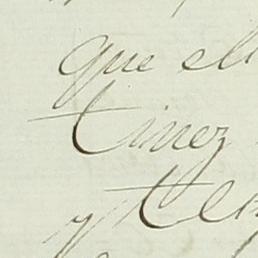 que el
tinez
y